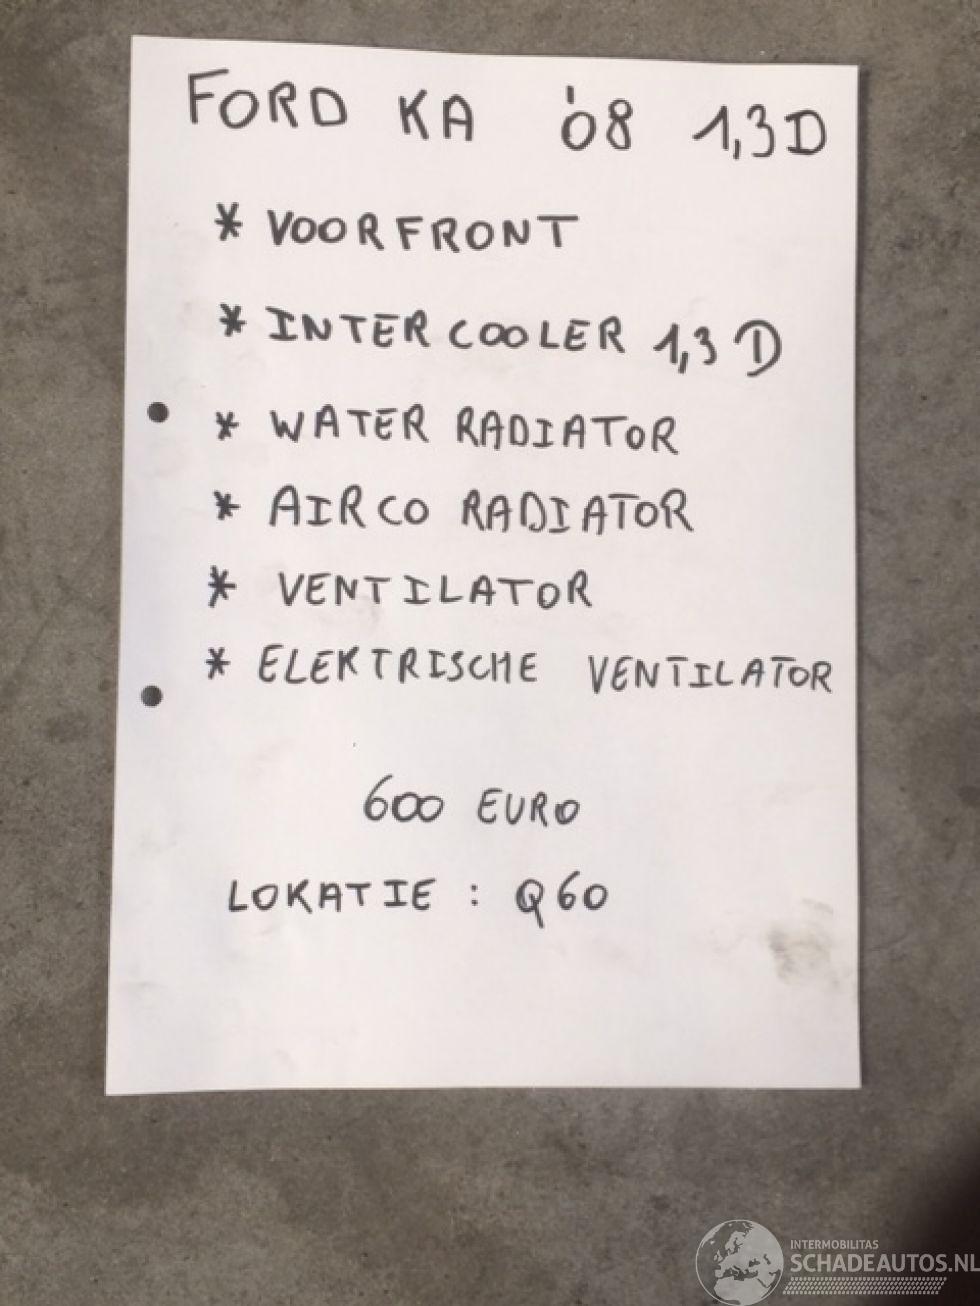 FORD KA '08 1,3D
* VOORFRONT
* INTERCOOLER 1,3 D
* WATER RADIATOR
* AIRCO RADIATOR
* VENTILATOR
* ELEKTRISCHE VENTILATOR
600 EURO
LOKATIE : Q60
INTERMOBILITAS
SCHADEAUTOS.NL